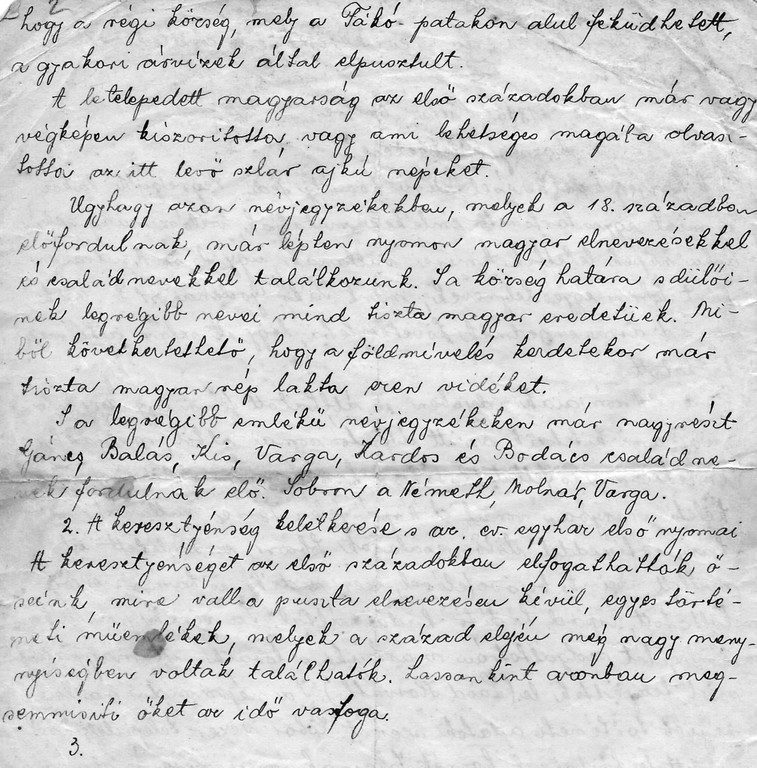 2
hogy a régi község, mely a Fakó-patakon alul feküdhetett,
a gyakori árvizek által elpusztult.
A letelepedett magyarság az első századokban már vagy
végképen kiszorította, vagy ami lehetséges magába olvasz-
totta az itt levő szláv ajkú népeket.
Ugyhogy azon névjegyzékekben, melyek a 18. században
előfordulnak, már lépten nyomon magyar elnevezésekkel
és családnevekkel találkozunk. S a község határa s dülői-
nek legrégibb nevei mind tiszta magyar eredetüek. Mi-
ből következtethető, hogy a földmívelés kezdetekor már
tiszta magyar nép lakta ezen vidéket.
S a legrégibb emlékü névjegyzékeken már nagyrészt
Gáncs, Balás, Kis, Varga, Kardos és Bodács családne-
vek fordulnak elő. Soboron a Németh, Molnár, Varga.
2. A keresztyénség keletkezése s az ev. egyház első nyomai
A keresztyénséget az első századokban elfogathatták ő-
seink, mire vall a puszta elnevezésen kívül, egyes törté-
neti müemlékek, melyek a század elején még nagy meny-
nyiségben voltak találhatók. Lassankint azonban meg-
semmisíti őket az idő vasfoga.
3.